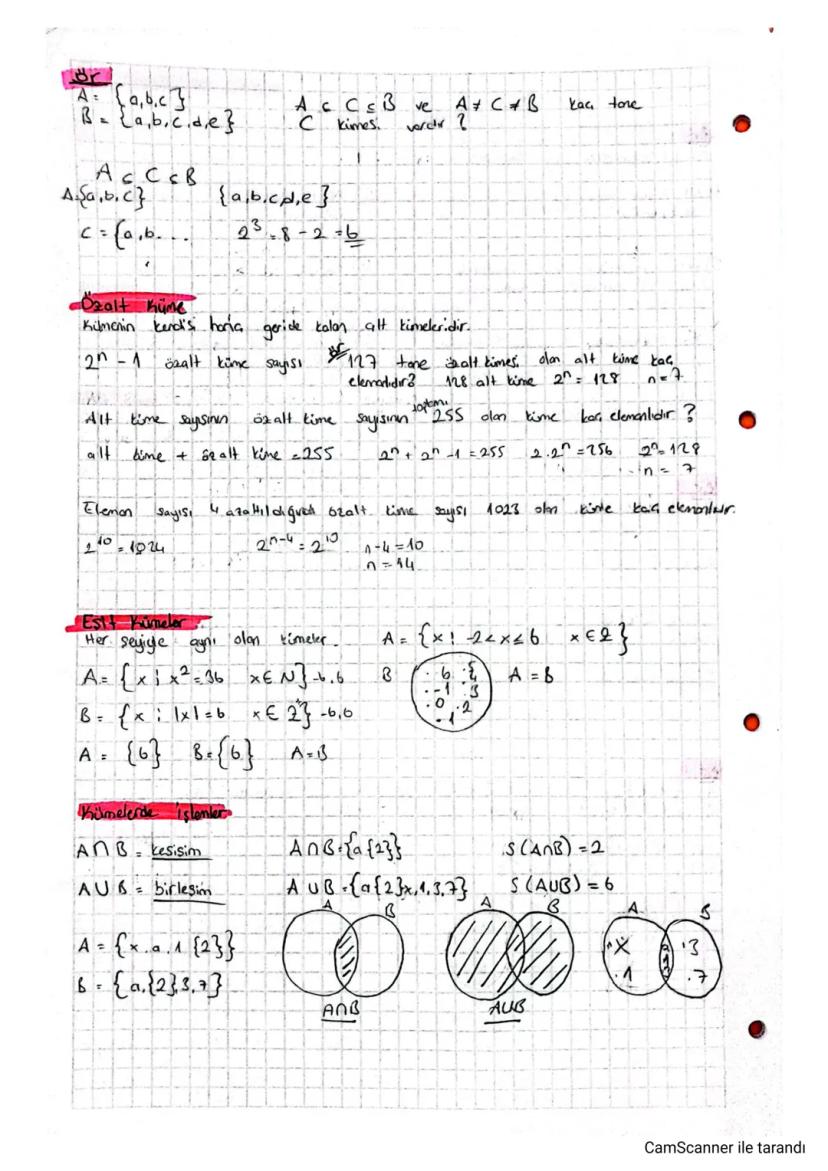 Ör
A = {a,b,c}
B = {a,b,c,d,e}
A ⊂ C ⊆ B ve A ≠ C ≠ B kaç tane
C kümesi vardır ?
A ⊂ C ⊂ B
A {a,b,c} {a,b,c,d,e}
C = {a,b... 2³ = 8 - 2 = 6
Özalt Küme
Kümenin kendisi hariç geride kalan alt kümeleridir.
2ⁿ - 1 özalt küme sayısı ör 127 tane özalt kümesi olan alt küme kaç
elemanlıdır? 128 alt küme 2ⁿ = 128 n = 7
Alt küme sayısının özalt küme sayısının toplamı 255 olan küme kaç elemanlıdır ?
alt küme + özalt küme = 255 2ⁿ + 2ⁿ - 1 = 255 2.2ⁿ = 256 2ⁿ = 128
n = 7
Eleman sayısı 4 azaltıldığında özalt küme sayısı 1023 olan küme kaç elemanlıdır.
2¹⁰ = 1024 2ⁿ⁻⁴ = 2¹⁰ n-4 = 10
n = 14
Eşit Kümeler
Her şeyiyle aynı olan kümeler. A = {x ¦ -2 < x ≤ 6 x ∈ Z}
A = {x ¦ x² = 36 x ∈ N} -6,6 B A = B
B = {x ¦ |x| = 6 x ∈ Z⁺} -6,6
A = {6} B = {6} A = B
Kümelerde İşlemler
A∩B = kesişim A∩B = {a {2}} S(A∩B) = 2
A∪B = birleşim A∪B = {a{2}x,1,3,7} S(A∪B) = 6
A B A B A B
A = {x.a.1 {2}}
x .3
B = {a,{2},3,7}
.1 .7
A∩B A∪B
CamScanner ile tarandı